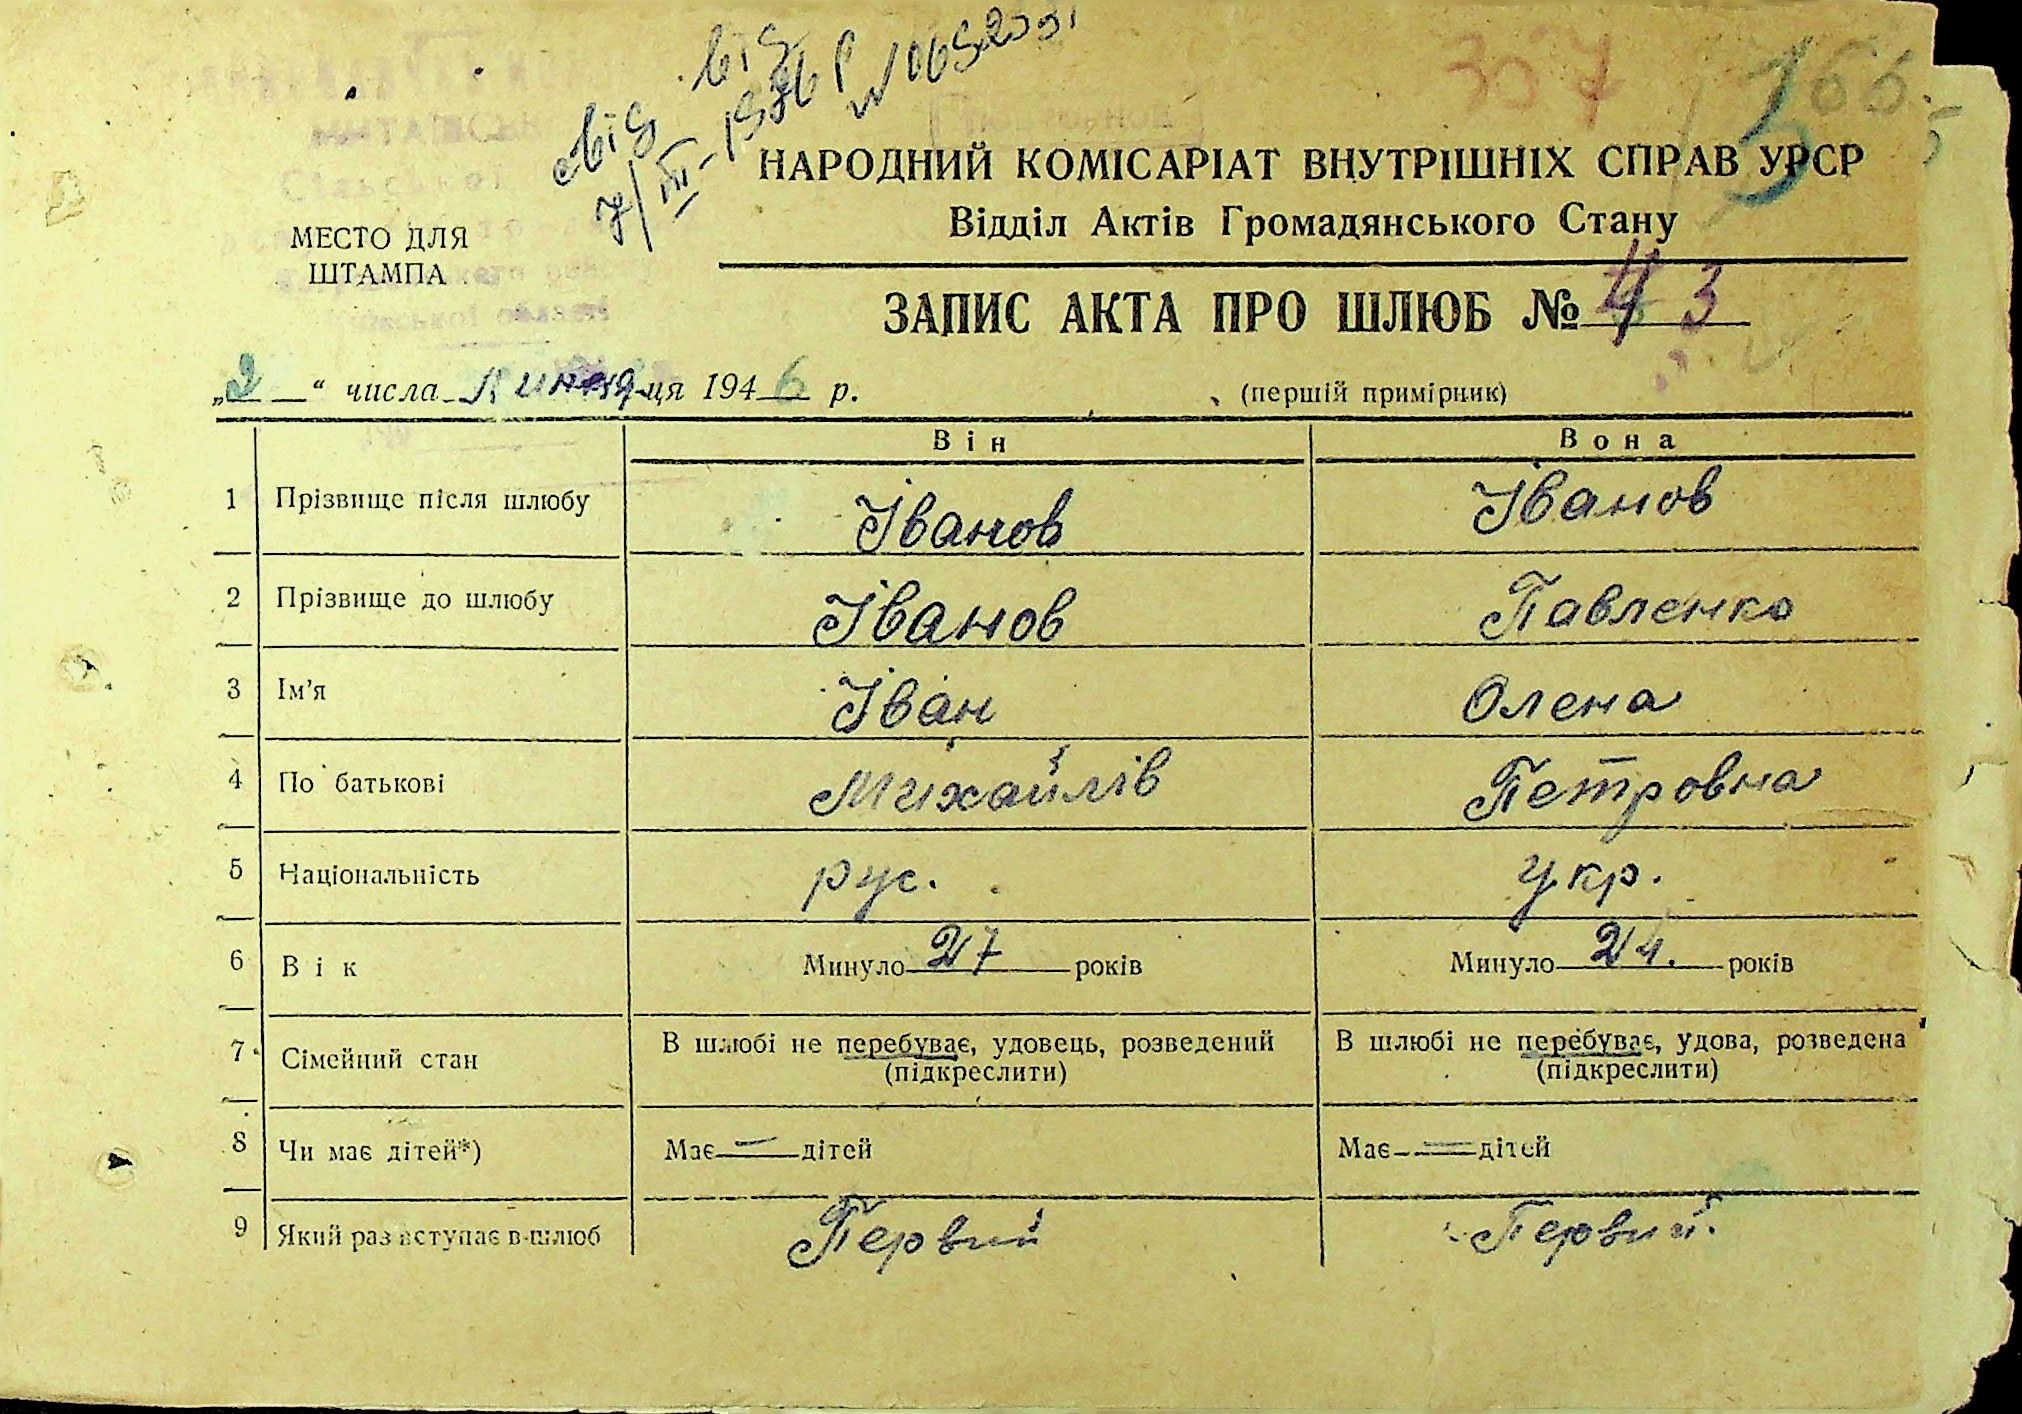 від
307
166
НАРОДНИЙ КОМІСАРІАТ ВНУТРІШНІХ СПРАВ УРСР
Відділ Актів Громадянського Стану
МЕСТО ДЛЯ
ШТАМПА
ЗАПИС АКТА ПРО ШЛЮБ № 43
„2“ числа ця 1946 р. (першій примірник)
Він Вона
1 Прізвище після шлюбу Іванов Іванов
2 Прізвище до шлюбу Іванов Павленко
3 Ім'я Іван Олена
4 По батькові Михайлів Петровна
5 Національність рус. укр.
6 Вік Минуло 27 років Минуло 24. років
7 Сімейний стан В шлюбі не перебуває, удовець, розведений (підкреслити) В шлюбі не перебуває, удова, розведена (підкреслити)
8 Чи має дітей*) Має — дітей Має — дітей
9 Який раз вступає в шлюб Первий Первий.